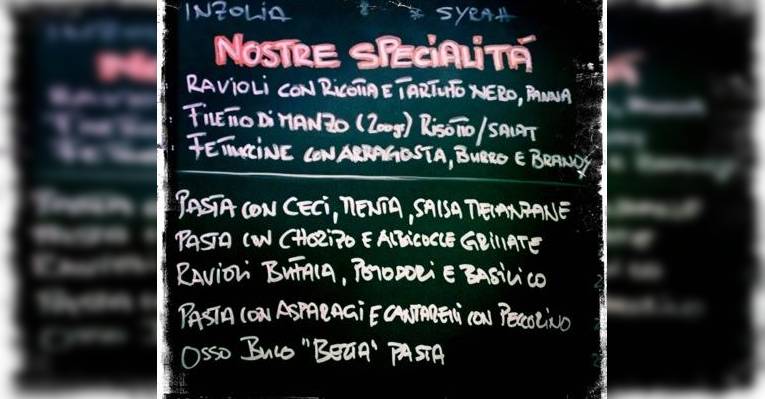 INZOLIA * SYRAH
NOSTRE SPECIALITÁ
RAVIOLI CON RICOTTA E TARTUFO NERO, PANNA
FILETTO DI MANZO (200gr) RISOTTO/SALAT
FETTUCCINE CON ARRAGOSTA, BURRO E BRANDY
PASTA CON CECI, MENTA, SALSA MELANZANE
PASTA CON CHORIZO E ALBICOCCE GRILLATE
RAVIOLI BUFALA, POMODORI E BASILICO
PASTA CON ASPARAGI E CANTARELLI CON PECCORINO
OSSO BUCO "BEZIA" PASTA